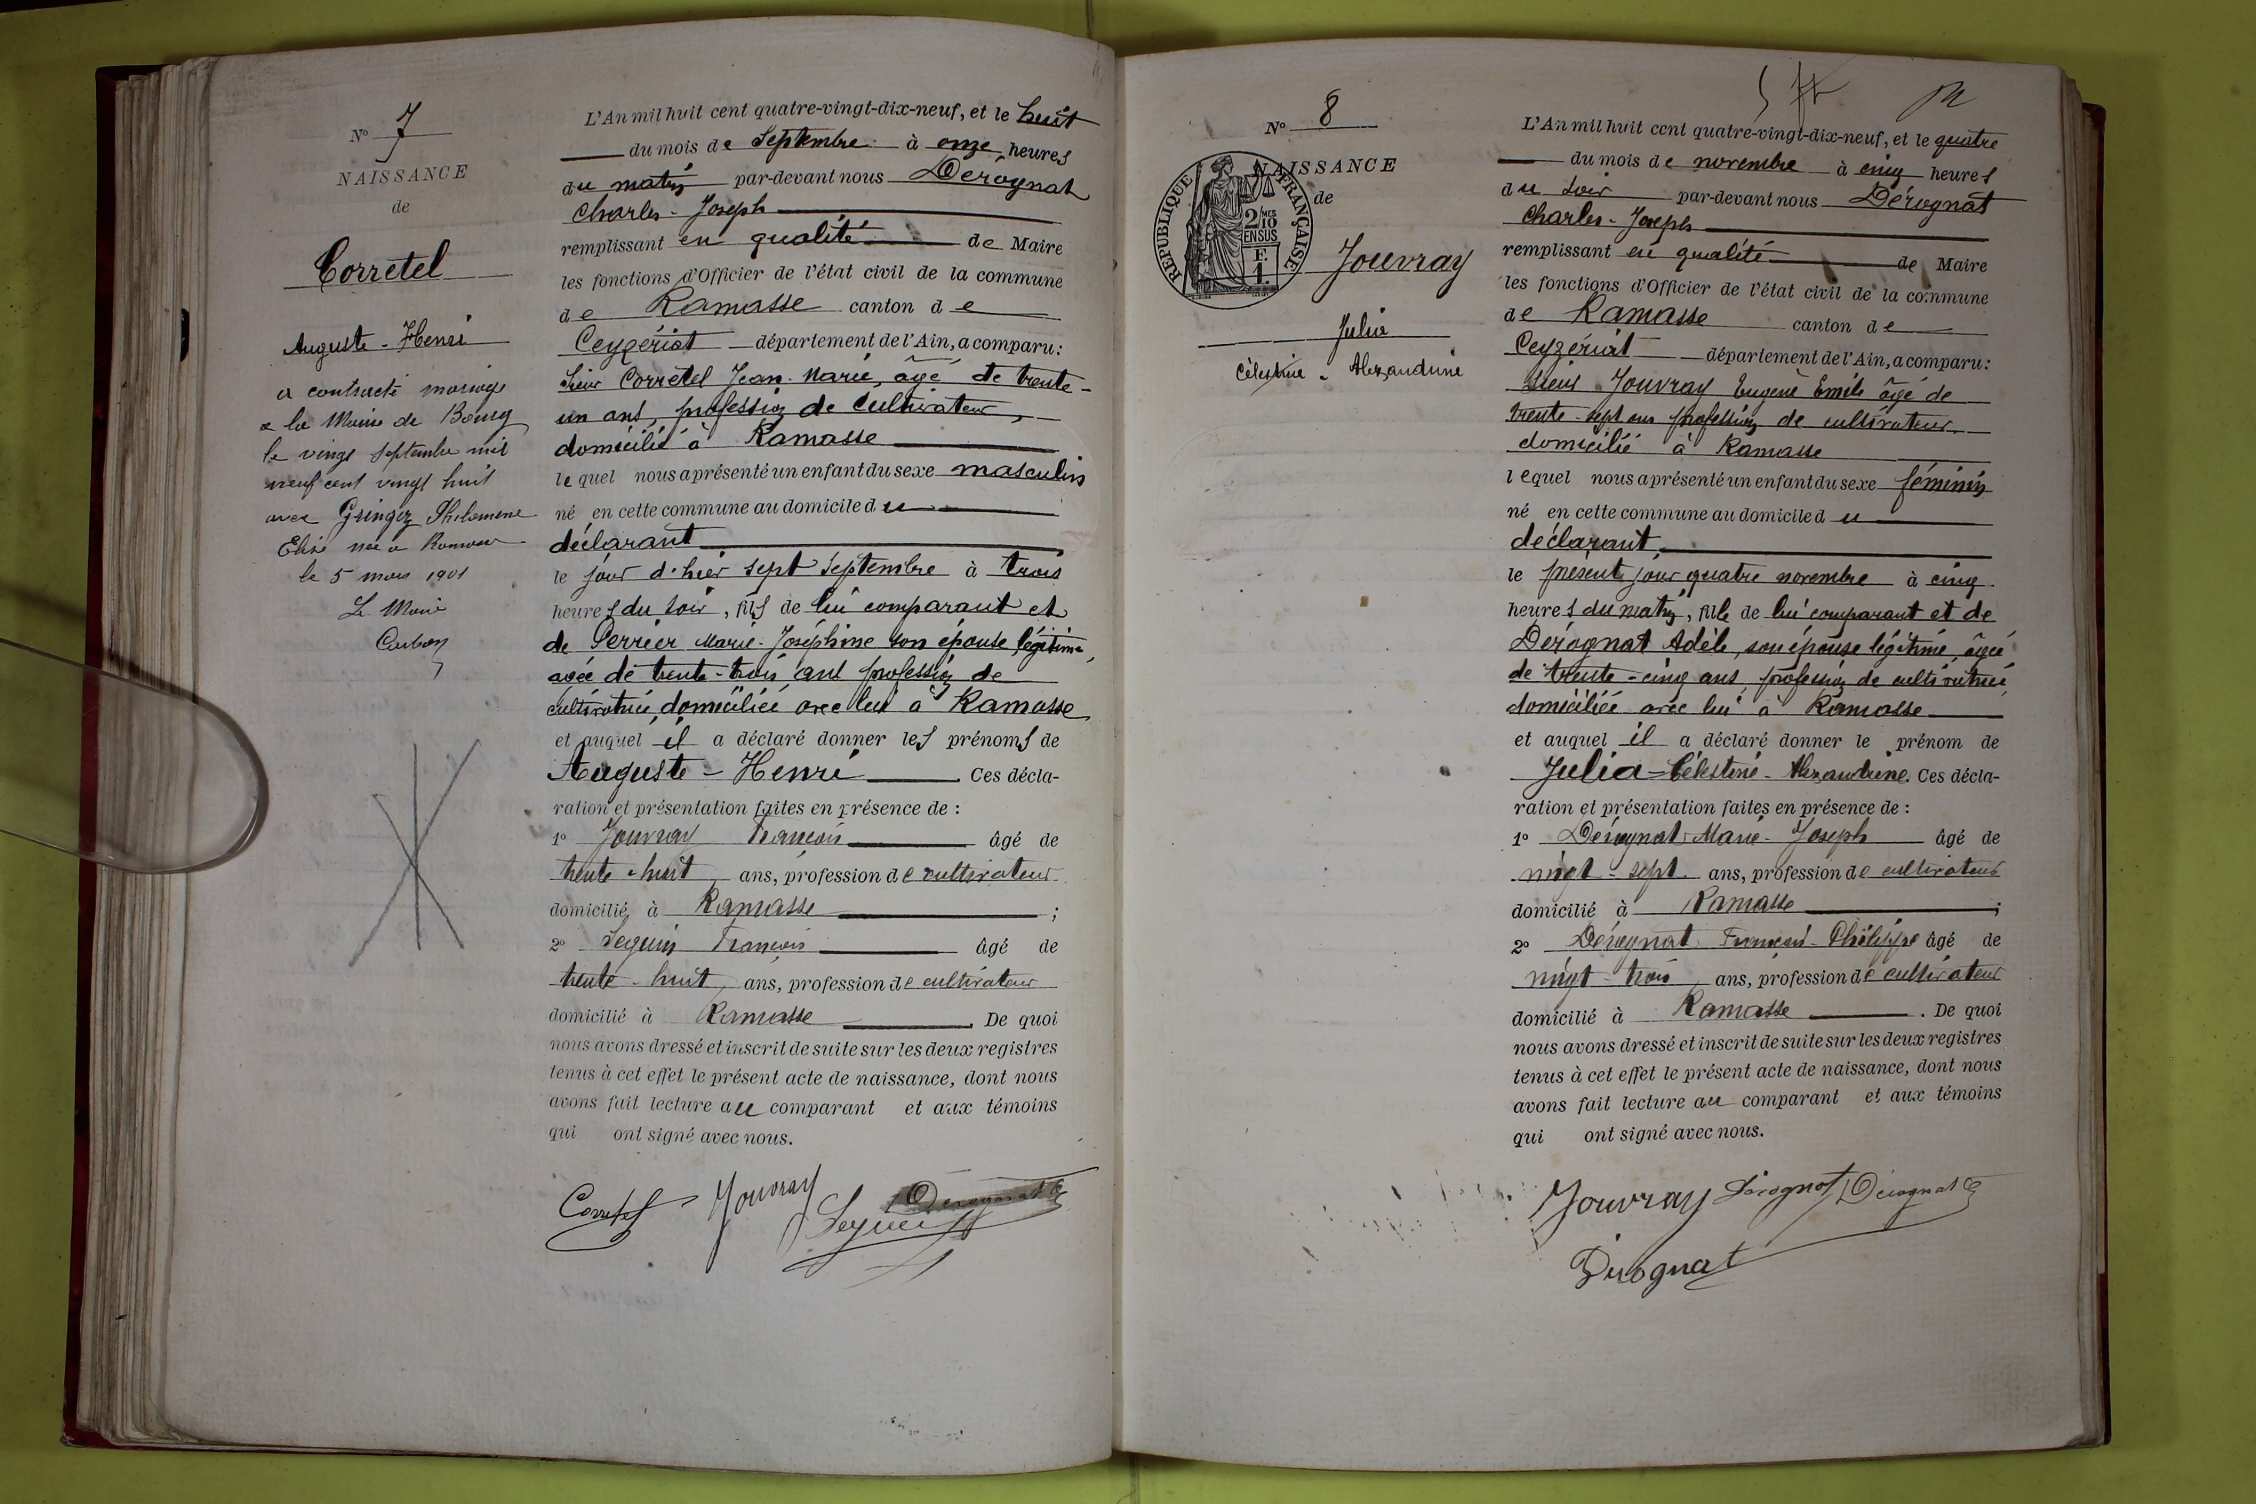 N° 7
NAISSANCE
de
Corretel
Auguste - Henri
a contracté mariage
a la Mairie de Bourg
le vingt septembre mil
neuf cent vingt huit
avec Gringoz Philomène
Elise née a Ramasse
le 5 mars 1901
Le Maire
L'An mil huit cent quatre-vingt-dix-neuf, et le huit
du mois de Septembre à onze heures
du matin par-devant nous Dérognat
Charles - Joseph
remplissant en qualité de Maire
les fonctions d'Officier de l'état civil de la commune
de Ramasse canton de
Ceyzériat département de l'Ain, a comparu :
Sieur Corretel Jean-Marie, âgé de trente-
un ans, profession de cultivateur,
domicilié à Ramasse
lequel nous a présenté un enfant du sexe masculin
né en cette commune au domicile du
déclarant
le jour d'hier sept septembre à trois
heures du soir, fils de lui comparant et
de Perrier Marie-Joséphine son épouse légitime,
agée de trente-trois ans profession de
cultivatrice, domiciliée avec lui à Ramasse
et auquel il a déclaré donner les prénoms de
Auguste - Henri Ces décla-
ration et présentation faites en présence de :
1° Jouvray François âgé de
trente-huit ans, profession de cultivateur
domicilié à Ramasse ;
2° Seguin François âgé de
trente-huit ans, profession de cultivateur
domicilié à Ramasse . De quoi
nous avons dressé et inscrit de suite sur les deux registres
tenus à cet effet le présent acte de naissance, dont nous
avons fait lecture au comparant et aux témoins
qui ont signé avec nous.
Corretel Jouvray Dérognat
Seguin
N° 8
NAISSANCE
de
RÉPUBLIQUE FRANÇAISE
2/10 MES
EN SUS
F.
1.
Jouvray
Julia
Célestine - Alexandrine
L'An mil huit cent quatre-vingt-dix-neuf, et le quatre
du mois de novembre à cinq heures
du soir par-devant nous Dérognat
Charles-Joseph
remplissant en qualité de Maire
les fonctions d'Officier de l'état civil de la commune
de Ramasse canton de
Ceyzériat département de l'Ain, a comparu :
Sieur Jouvray Eugène Emile âgé de
trente-sept ans profession de cultivateur
domicilié à Ramasse
lequel nous a présenté un enfant du sexe féminin
né en cette commune au domicile du
déclarant
le présent jour quatre novembre à cinq
heures du matin, fille de lui comparant et de
Dérognat Adèle, son épouse légitime, âgée
de trente-cinq ans, profession de cultivatrice,
domiciliée avec lui à Ramasse
et auquel il a déclaré donner le prénom de
Julia-Célestine-Alexandrine. Ces décla-
ration et présentation faites en présence de :
1° Dérognat Marie-Joseph âgé de
vingt-sept ans, profession de cultivateur
domicilié à Ramasse ;
2° Dérognat François-Philippe âgé de
vingt-trois ans, profession de cultivateur
domicilié à Ramasse . De quoi
nous avons dressé et inscrit de suite sur les deux registres
tenus à cet effet le présent acte de naissance, dont nous
avons fait lecture au comparant et aux témoins
qui ont signé avec nous.
Jouvray Dérognat Dérognat
Dérognat